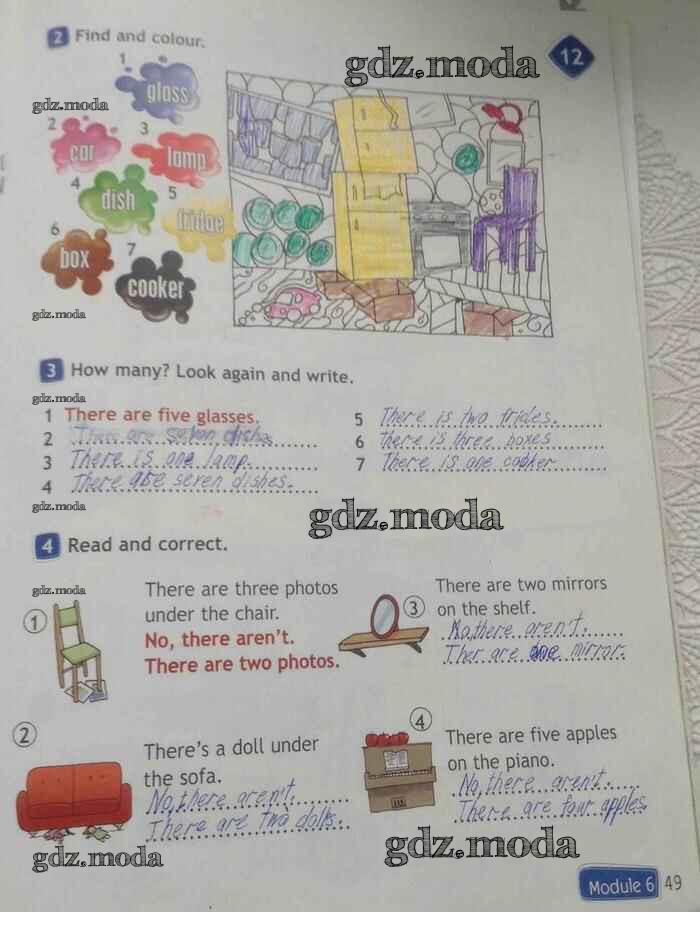 2 Find and colour.
gdz.moda
12
1
glass
gdz.moda
2
car
3
lamp
4
dish
5
fridge
6
box
7
cooker
gdz.moda
3 How many? Look again and write.
gdz.moda
1 There are five glasses.
2 There are seven dishes
3 There is one lamp.
4 There are seven dishes.
5 There is two frides.
6 there is three boxes
7 There is one cooker
gdz.moda
gdz.moda
4 Read and correct.
gdz.moda
1
There are three photos
under the chair.
No, there aren't.
There are two photos.
3
There are two mirrors
on the shelf.
No, there aren't.
Ther are one mirror.
2
There's a doll under
the sofa.
No, there aren't.
There are two dolls.
4
There are five apples
on the piano.
No, there aren't.
There are four apples
gdz.moda
gdz.moda
Module 6 49